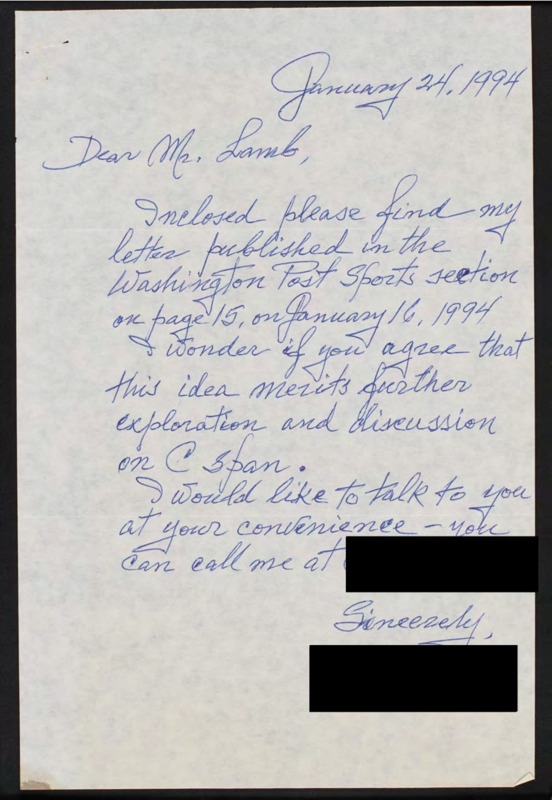 January 24, 1994
Dear Mr. Lamb,
Inclosed please find my
letter published in the
Washington Post Sports section
on page 15, on January 16, 1994
I wonder if you agree that
this idea merits further
exploration and discussion
on C span.
I would like to talk to you
at your convenience – you
can call me at
Sincerely,